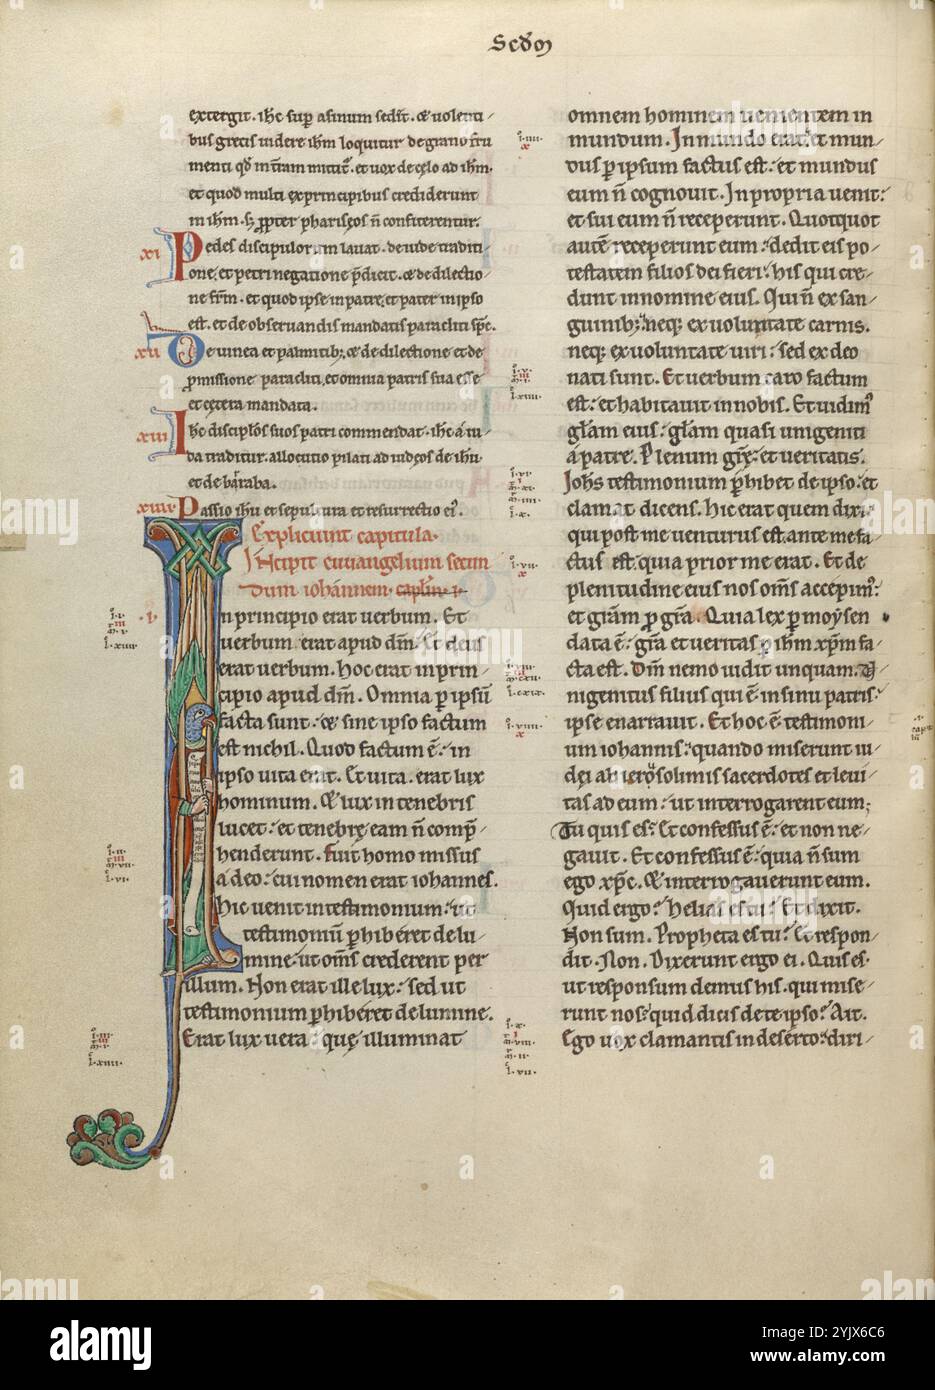 Scd̄m
extergit. ihc̄ sup̄ asinum sedit. & uolenti
bus grecis uidere ihm̄ loquitur de grano fru
menti qd̄ in t̄ram mittit̄. et uox de cęlo ad ihm̄.
et quod multi ex principibus crediderunt
in ihm̄. s; ꝓpter phariseos n̄ confiterentur.
xi Pedes discipulorum lauat. de iude traditi
one, et petri negatione p̄dicit. & de dilectio
ne frm̄. et quod ipse in patre, et pater in ipso
est. et de obseruandis mandatis paracliti sp̄c.
xii De uinea et palmitib;, & de dilectione et de
ꝓmissione paracliti, et omnia patris sua esse
et cętera mandata.
xiii Ihc̄ discip̄los suos patri commendat. ihc̄ a iu
da traditur. allocutio pilati ad iudęos de ihu
et de baraba.
xiiii Passio ihu et sepultura et resurrectio ei'.
Expliciunt capitula.
INcipit euuangelium secun
dum iohannem
In principio erat uerbum. Et
uerbum erat apud dm̄. Et deus
erat uerbum. Hoc erat in prin
cipio apud dm̄. Omnia p̄ ipsū
facta sunt: & sine ipso factum
est nichil. Quod factum ē: in
ipso uita erat. Et uita erat lux
hominum. & lux in tenebris
lucet: et tenebrę eam n̄ comp̄
henderunt. Fuit homo missus
a deo: cui nomen erat iohannes.
hic uenit in testimonium: ut
testimoniū p̄hiberet de lu
mine. ut om̄s crederent per
illum. Non erat ille lux: sed ut
testimonium p̄hiberet de lumine.
Erat lux uera: quę illuminat
omnem hominem uenientem in
mundum. In mundo erat: et mun
dus p̄ ipsum factus est: et mundus
eum n̄ cognouit. In propria uenit:
et sui eum n̄ receperunt. Quotquot
autē receperunt eum: dedit eis po
testatem filios dei fieri: his qui cre
dunt in nomine eius. Qui n̄ ex san
guinib; neq; ex uoluntate carnis.
neq; ex uoluntate uiri: sed ex deo
nati sunt. Et uerbum caro factum
est: et habitauit in nobis. Et uidim'
glām eius: glām quasi unigeniti
a patre. Plenum gr̄ę: et ueritatis.
Iohs̄ testimonium p̄hibet de ipso: et
clamat dicens. Hic erat quem dixi.
qui post me uenturus est. ante me fa
ctus est. quia prior me erat. Et de
plenitudine eius nos om̄s accepim':
et grām ꝓ grā. Quia lex p̄ moysen
data ē: grā et ueritas p̄ ihm̄ xp̄m fa
cta est. Dm̄ nemo uidit unquam. U
nigenitus filius qui ē in sinu patris:
ipse enarrauit. Et hoc ē testimoni
um iohannis: quando miserunt iu
dęi ab ierosolimis sacerdotes et leui
tas ad eum: ut interrogarent eum;
Tu quis es: Et confessus ē: et non ne
gauit. Et confessus ē: quia n̄ sum
ego xp̄c. & interrogauerunt eum.
Quid ergo? helias es tu? Et dixit.
Non sum. Propheta es tu? Et respon
dit. Non. Dixerunt ergo ei. Quis es.
ut responsum demus his. qui mise
runt nos: quid dicis de te ipso? Ait.
Ego uox clamantis in deserto: diri
alamy
Image ID: 2YJX6C6
www.alamy.com